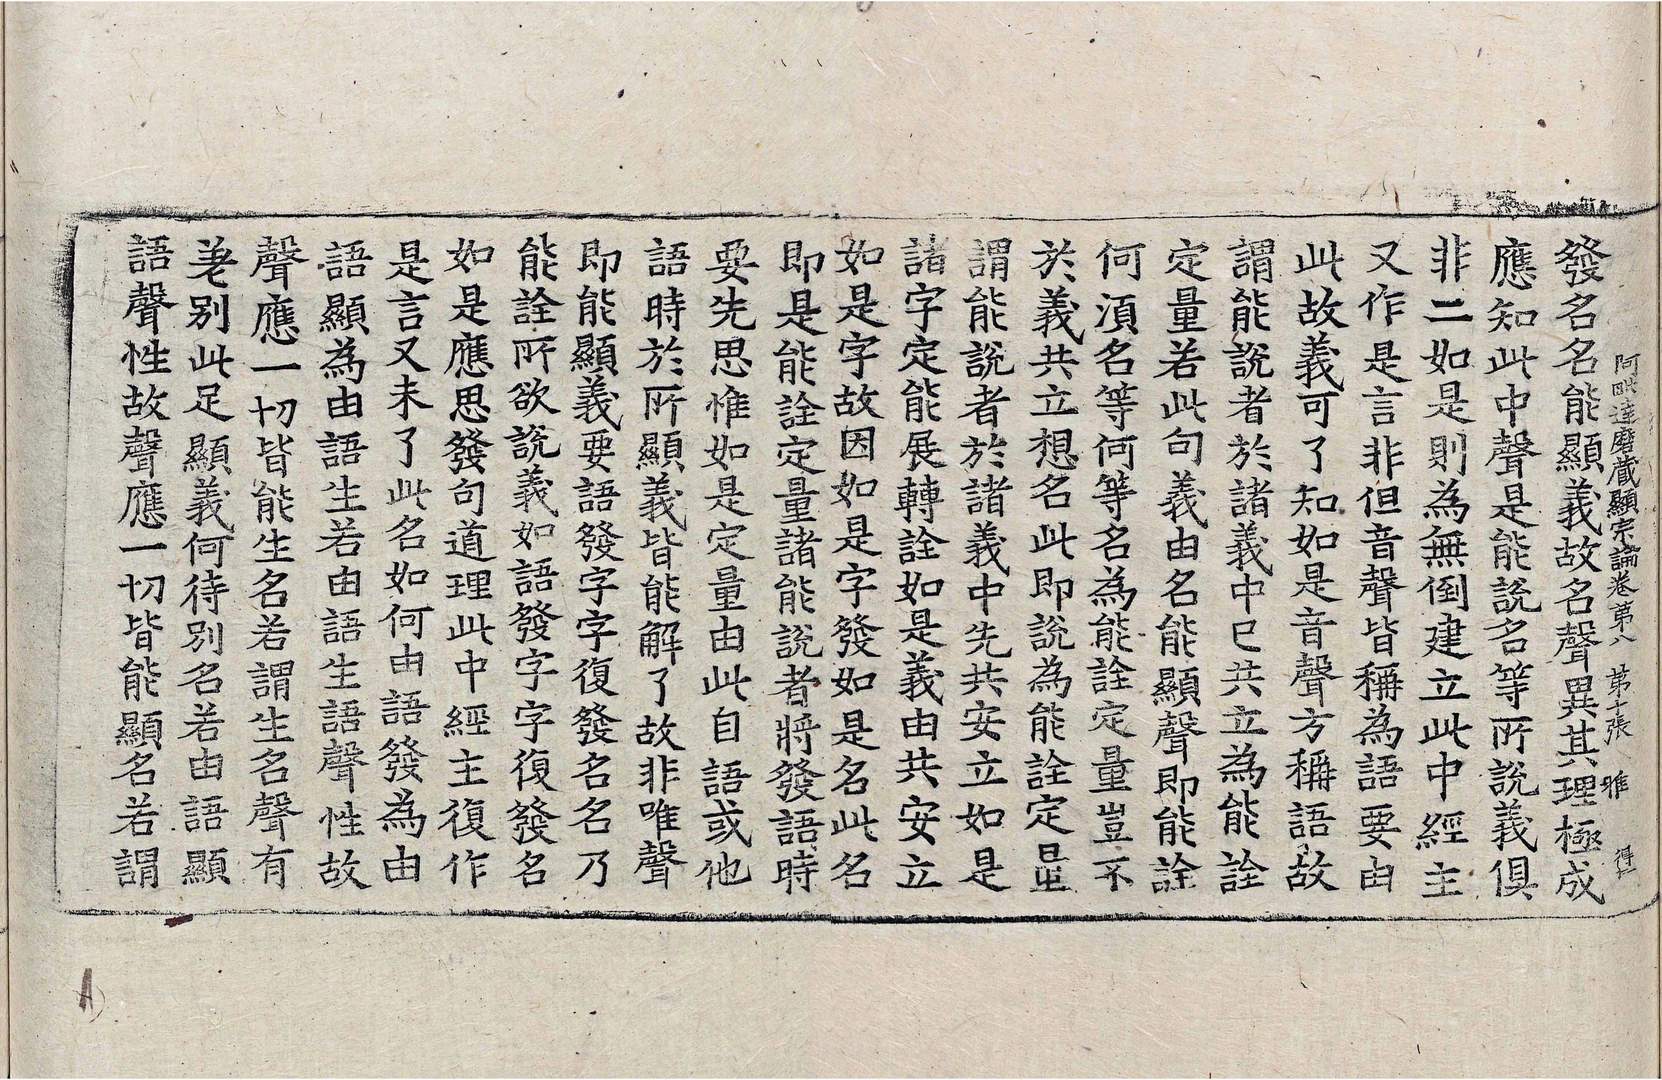 阿毗達磨藏顯宗論卷第八 第十張 雅 得
發名名能顯義故名聲異其理極成
應知此中聲是能說名等所說義俱
非二如是則為無倒建立此中經主
又作是言非但音聲皆稱為語要由
此故義可了知如是音聲方稱語故
謂能說者於諸義中已共立為能詮
定量若此句義由名能顯聲即能詮
何湏名等何等名為能詮定量豈不
於義共立想名此即說為能詮定量
謂能說者於諸義中先共安立如是
諸字定能展轉詮如是義由共安立
如是字故因如是字發如是名此名
即是能詮定量諸能說者將發語時
要先思惟如是定量由此自語或他
語時於所顯義皆能解了故非唯聲
即能顯義要語發字字復發名名乃
能詮所欲說義如語發字字復發名
如是應思發句道理此中經主復作
是言又未了此名如何由語發為由
語顯為由語生若由語生語聲性故
聲應一切皆能生名若謂生名聲有
差別此足顯義何待別名若由語顯
語聲性故聲應一切皆能顯名若謂